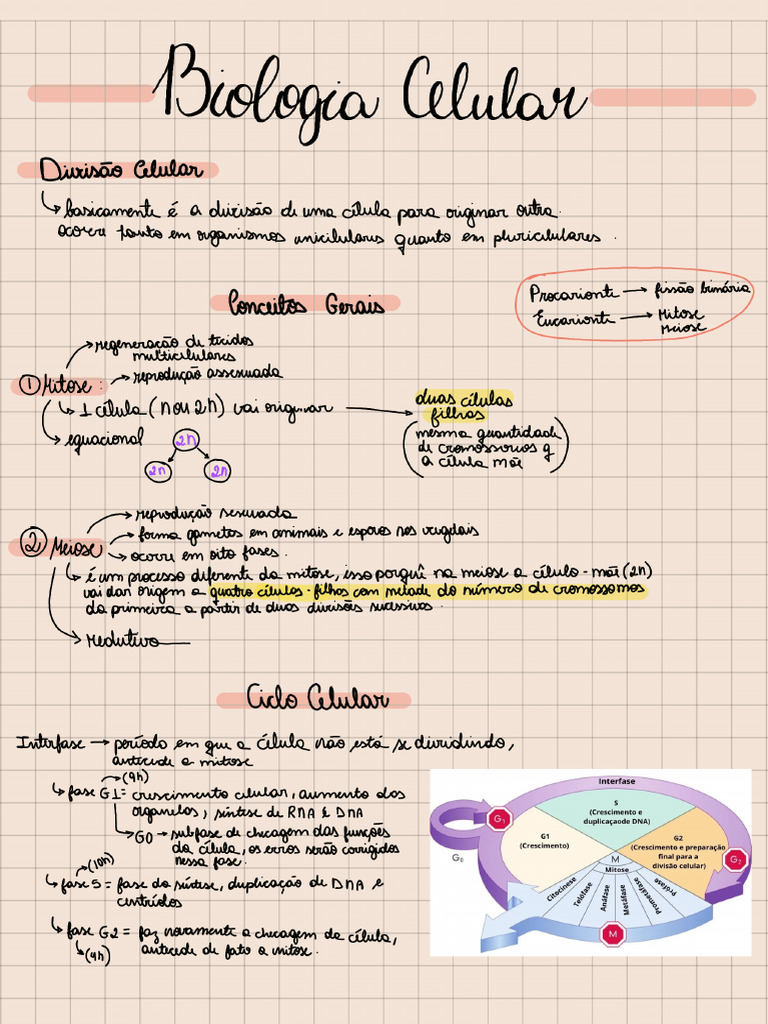 Biologia Celular
Divisão Celular
basicamente é a divisão de uma célula para originar outra.
ocorre tanto em organismos unicelulares quanto em pluricelulares.
Conceitos Gerais
Procarionte → fissão binária
Eucarionte → Mitose
Meiose
regeneração de tecidos
multicelulares
① Mitose: → reprodução assexuada
1 célula (n ou 2n) vai originar → duas células
filhas
equacional
2n
2n 2n
(mesma quantidade
de cromossomos q
a célula mãe)
reprodução sexuada
② Meiose → forma gametas em animais e esporos nos vegetais
ocorre em oito fases.
é um processo diferente da mitose, isso porquê na meiose a célula-mãe (2n)
vai dar origem a quatro células-filhas com metade do número de cromossomos
da primeira a partir de duas divisões sucessivas.
redutiva
Ciclo Celular
Interfase → período em que a célula não está se dividindo,
antecede a mitose
(9h)
fase G1 = crescimento celular, aumento das
organelas, síntese de RNA e DNA
G0 → subfase de checagem das funções
da célula, os erros serão corrigidos
nessa fase.
(10h)
fase S = fase da síntese, duplicação de DNA e
centríolos
fase G2 = faz novamente a checagem da célula,
(4h) antecede de fato a mitose.
Interfase
S
(Crescimento e
duplicaçaode DNA)
G1
G1
(Crescimento)
G2
(Crescimento e preparação
final para a
divisão celular)
G0
G2
M
Mitose
Citocinese
Telófase
Anáfase
Metáfase
Prometáfase
Prófase
M